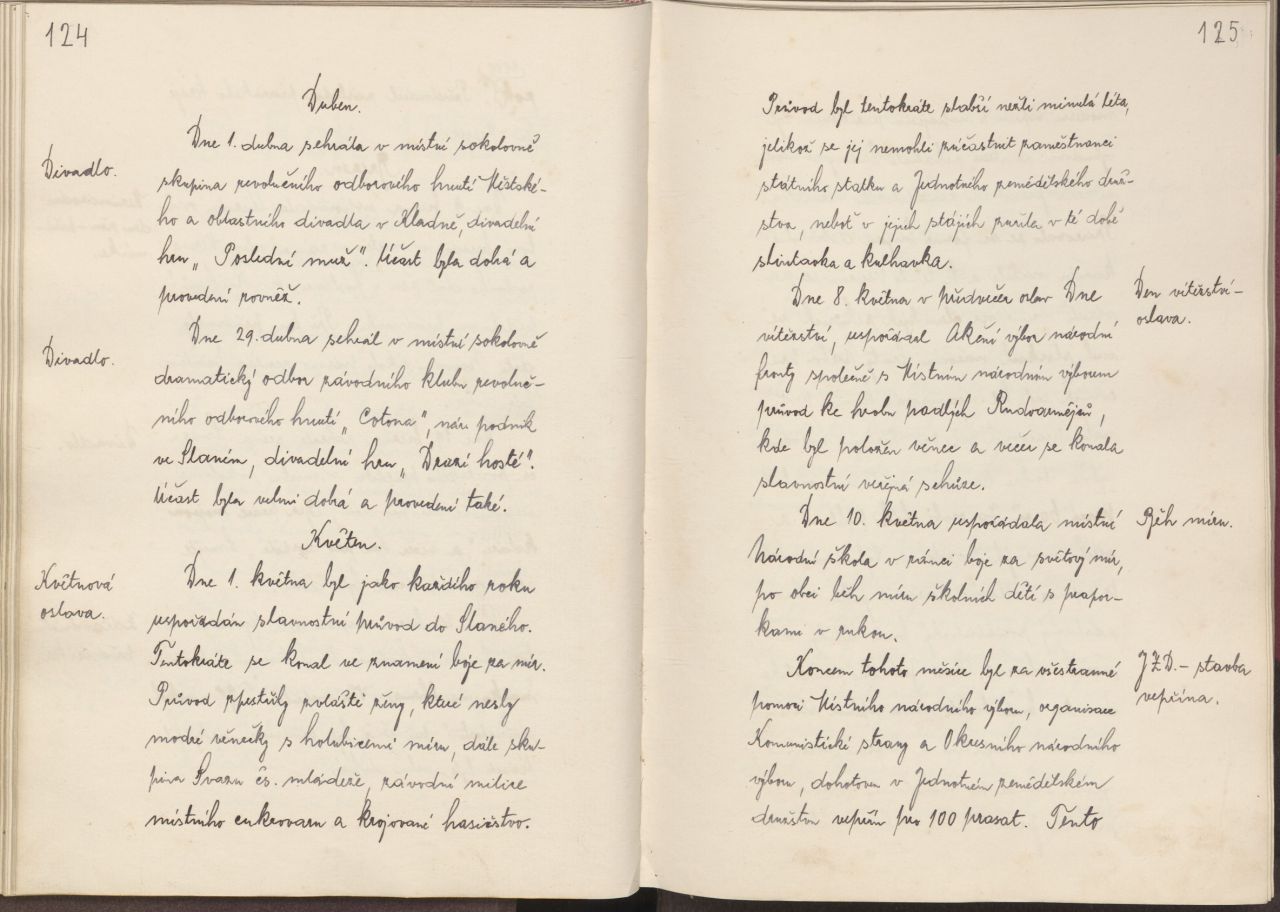 124
Duben.
Divadlo.
Dne 1. dubna sehrála v místní sokolovně
skupina revolučního odborového hnutí Městské-
ho a oblastního divadla v Kladně, divadelní
hru „Poslední muž". Účast byla dobrá a
provedení rovněž.
Divadlo.
Dne 29. dubna sehrál v místní sokolovně
dramatický odbor závodního klubu revoluč-
ního odborového hnutí „Cotona", nár. podnik
ve Slaném, divadelní hru „Drazí hosté".
Účast byla velmi dobrá a provedení také.
Květen.
Květnová
oslava.
Dne 1. května byl jako každého roku
uspořádán slavnostní průvod do Slaného.
Tentokráte se konal ve znamení boje za mír.
Průvod zpestřily zvláště ženy, které nesly
modré věnečky s holubicemi míru, dále sku-
pina Svazu čs. mládeže, závodní milice
místního cukrovaru a krojované hasičstvo.
125
Průvod byl tentokráte slabší nežli minulá léta,
jelikož se jej nemohli zúčastnit zaměstnanci
státního statku a Jednotného zemědělského druž-
stva, neboť v jejich stájích zuřila v té době
slintavka a kulhavka.
Den vítězství -
oslava.
Dne 8. května v předvečer oslav Dne
vítězství, uspořádal Akční výbor národní
fronty společně s Místním národním výborem
průvod ke hrobu padlých Rudoarmějců,
kde byl položen věnec a večer se konala
slavnostní veřejná schůze.
Běh míru.
Dne 10. května uspořádala místní
Národní škola v rámci boje za světový mír,
po obci běh míru školních dětí s prapor-
kami v rukou.
JZD. - stavba
vepřína.
Koncem tohoto měsíce byl za všestranné
pomoci Místního národního výboru, organisace
Komunistické strany a Okresního národního
výboru, dohotoven v Jednotném zemědělském
družstvu vepřín pro 100 prasat. Tento